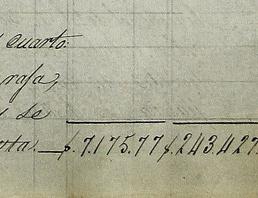 cuarto
rasa,
se
ta. — $. 7.175.77 $. 243.427.